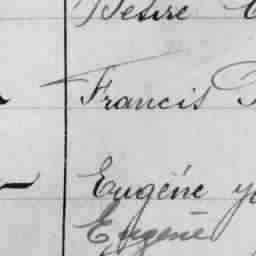 Desire
Francis
Eugéne
Eugene